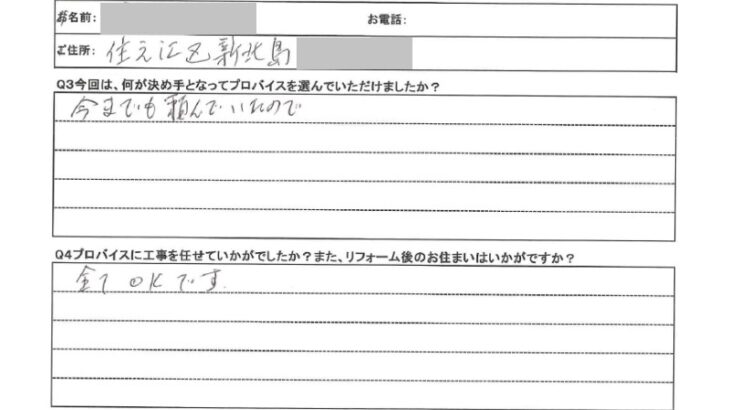 お名前: お電話:
ご住所: 住之江区新北島
Q3今回は、何が決め手となってプロバイスを選んでいただけましたか?
今までも頼んでいたので
Q4プロバイスに工事を任せていかがでしたか?また、リフォーム後のお住まいはいかがですか?
全てOKです